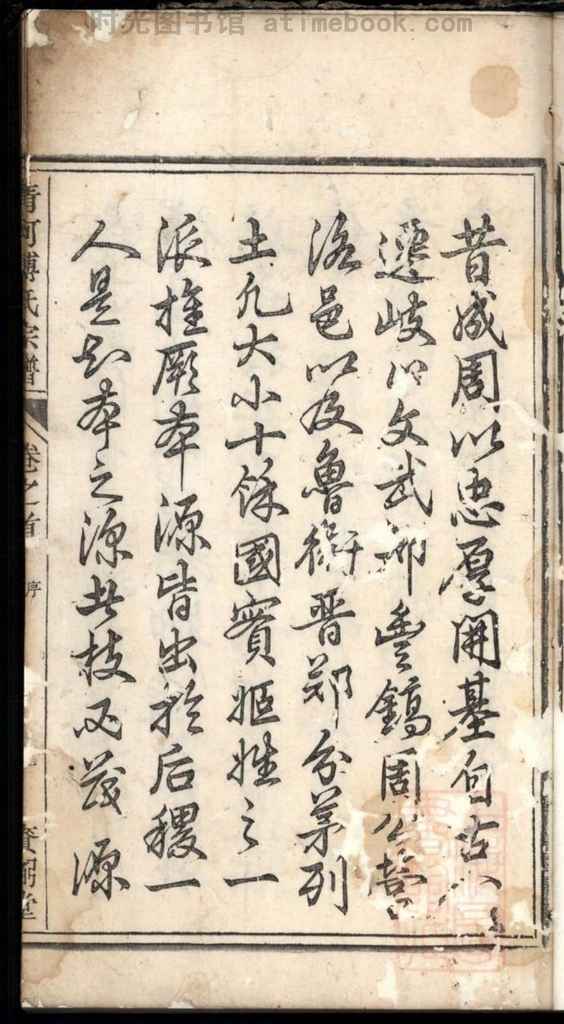 时光图书馆 atimebook.com
昔成周以忠厚開基自古公
遷岐以文武都豐鎬周公營
洛邑以及魯衛晉鄭分茅列
土凡大小十餘國實姬姓之一
派推厥本源皆出於后稷一
人是知本之深其枝必茂源
清河傅氏宗譜 卷之首 序 賚弼堂